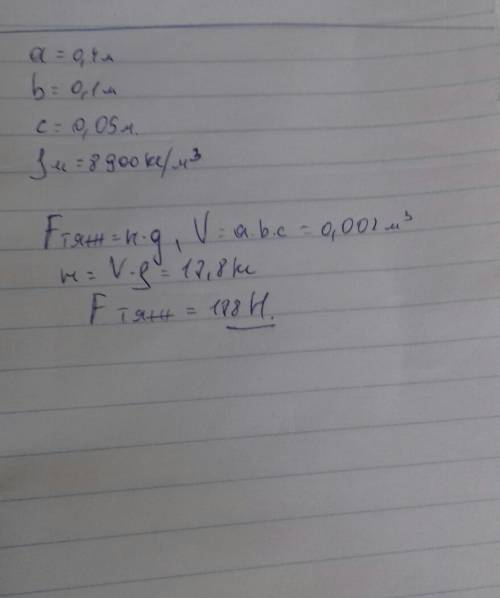 a = 0,4м
b = 0,1м
c = 0,05м.
ρм = 8900кг/м³
Fтяж = m·g, V = a·b·c = 0,002 м³
m = V·ρ = 17,8кг
Fтяж = 178Н.